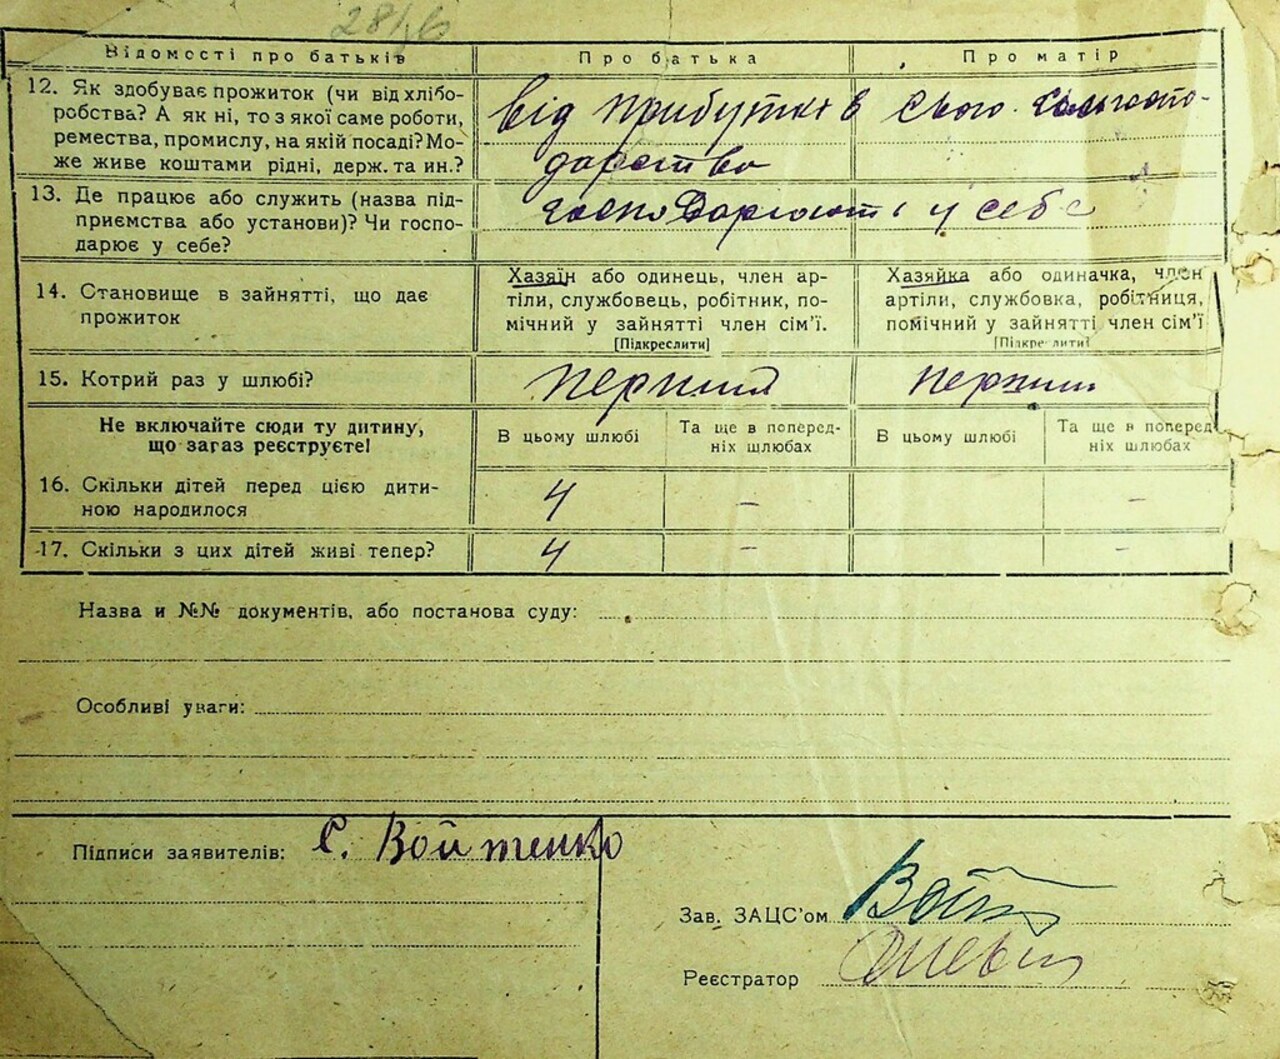 Відомості про батьків Про батька Про матір
12. Як здобуває прожиток (чи від хлібо-
робства? А як ні, то з якої саме роботи,
ремества, промислу, на якій посаді? Мо-
же живе коштами рідні, держ. та ин.?
від прибутків свого сільгоспо-
дарство
13. Де працює або служить (назва під-
приємства або установи)? Чи госпо-
дарює у себе?
господарюють у себе
14. Становище в зайнятті, що дає
прожиток
Хазяїн або одинець, член ар-
тіли, службовець, робітник, по-
мічний у зайнятті член сім'ї.
[Підкреслити]
Хазяйка або одиначка, член
артіли, службовка, робітниця,
помічний у зайнятті член сім'ї
[Підкреслити]
15. Котрий раз у шлюбі?
перший первший
Не включайте сюди ту дитину,
що загаз реєструєте!
В цьому шлюбі
Та ще в поперед-
ніх шлюбах
В цьому шлюбі
Та ще в поперед-
ніх шлюбах
16. Скільки дітей перед цією дити-
ною народилося
4 — —
17. Скільки з цих дітей живі тепер?
4 — —
Назва и №№ документів, або постанова суду:
Особливі уваги:
Підписи заявителів: С. Войтенко
Зав. ЗАЦС'ом
Реєстратор